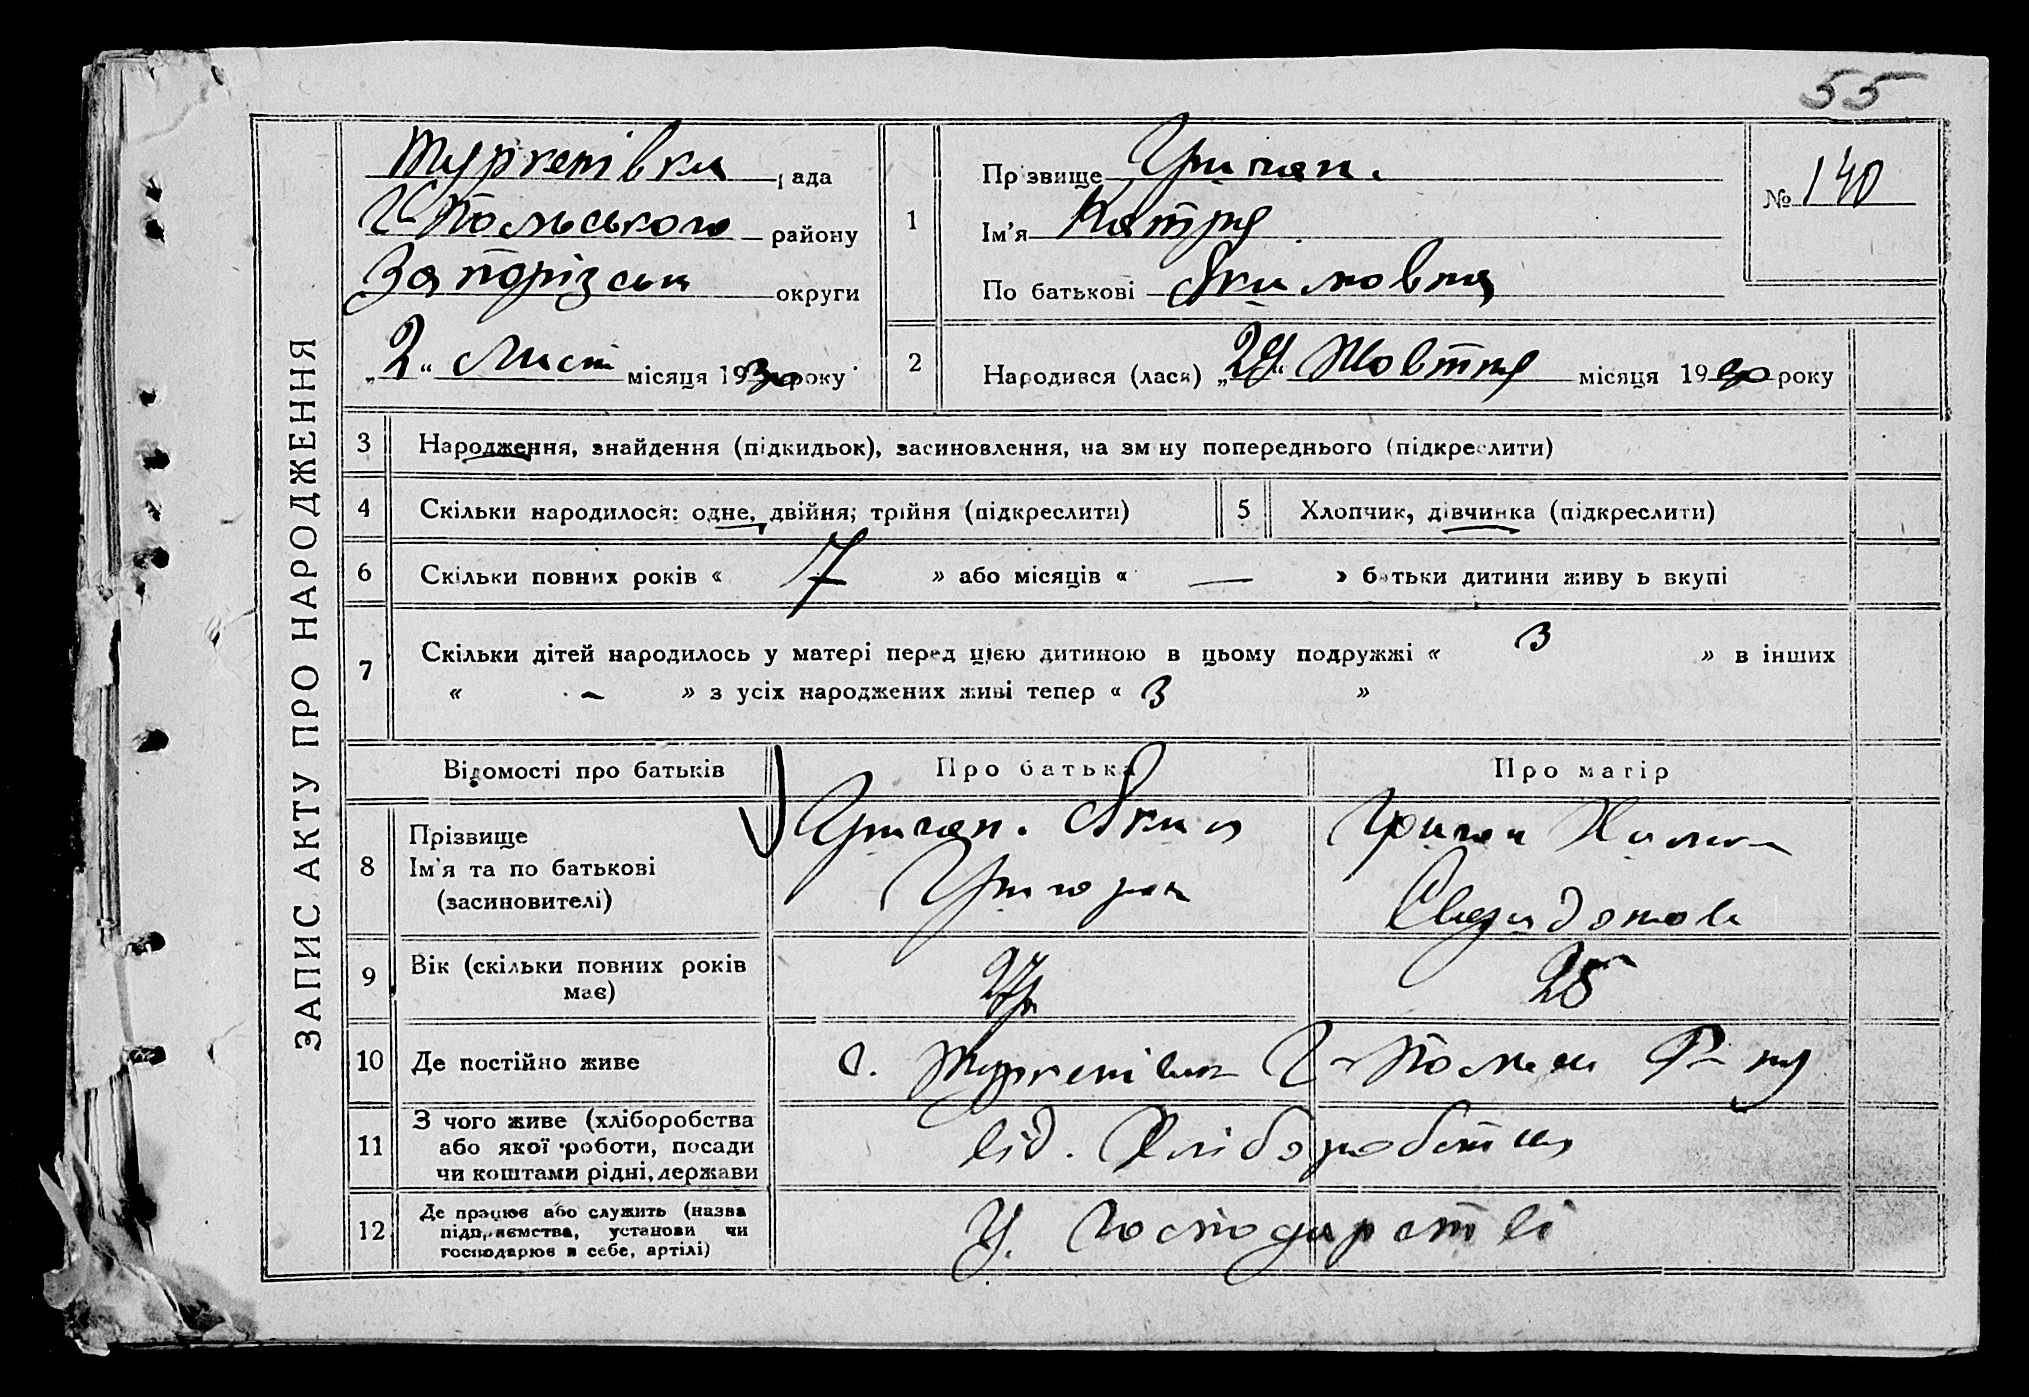 55
Туркенівка рада
Г-Польського району
Запорізськ округи
„2“ Лист місяця 1930 року
1
Прізвище Грицан.
Ім'я Катря
По батькові Якимовна
№ 140
2
Народився (лася) „29“ Жовтня місяця 1930 року
ЗАПИС АКТУ ПРО НАРОДЖЕННЯ
3 Народження, знайдення (підкидьок), засиновлення, на зміну попереднього (підкреслити)
4 Скільки народилося: одне, двійня; трійня (підкреслити)
5 Хлопчик, дівчинка (підкреслити)
6 Скільки повних років « 7 » або місяців « — » батьки дитини живуть вкупі
7 Скільки дітей народилось у матері перед цією дитиною в цьому подружжі « 3 » в інших
« - » з усіх народжених живі тепер « 3 »
Відомості про батьків Про батька Про матір
8 Прізвище
Ім'я та по батькові
(засиновителі)
Грицан. Яким
Григоров
Грицан
9 Вік (скільки повних років
має)
27р
25
10 Де постійно живе
с. Туркенівка Г-Польськ Р-ну
11 З чого живе (хліборобства
або якої роботи, посади
чи коштами рідні, держави
від. Хліборобства
12 Де працює або служить (назва
підприємства, установи чи
господарює в себе, артілі)
У. господарстві